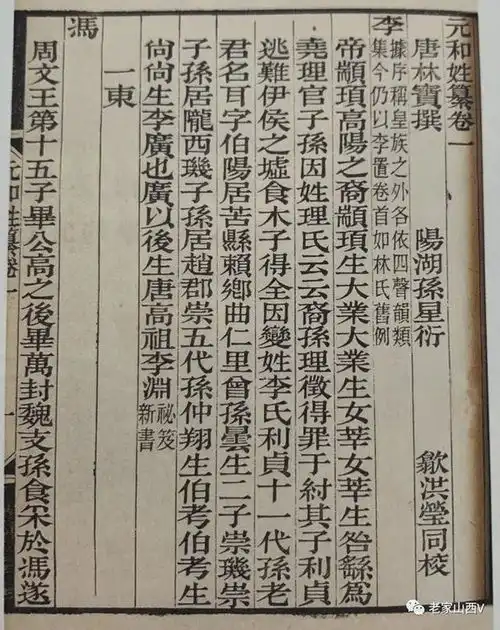 元和姓纂卷一
唐林寶撰 陽湖孫星衍 歙洪瑩同校
李據序稱皇族之外各依四聲韻類
集今仍以李置卷首如林氏舊例
帝顓頊高陽之裔顓頊生大業大業生女莘女莘生咎繇為
堯理官子孫因姓理氏云云裔孫理徵得罪于紂其子利貞
逃難伊侯之墟食木子得全因變姓李氏利貞十一代孫老
君名耳字伯陽居苦縣賴鄉曲仁里曾孫曇生二子崇璣崇
子孫居隴西璣子孫居趙郡崇五代孫仲翔生伯考伯考生
尙尙生李廣也廣以後生唐高祖李淵祕笈
新書
一東
馮
周文王第十五子畢公高之後畢萬封魏支孫食采於馮遂
元和姓纂卷一
一
老家山西V